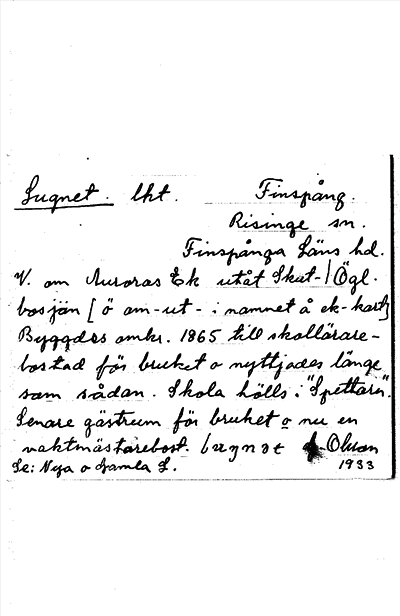 Lugnet. lht. Finspång.
Risinge sn.
Finspånga Läns hd.
V. om Auroras Ek utåt Skut- Ögl.
bosjön [ö om -ut- i namnet å ek-kart]
Byggdes omkr. 1865 till skollärare-
bostad för bruket o nyttjades länge
som sådan. Skola hölls i "Spettarn".
Senare gästrum för bruket o nu en
vaktmästarebost. Olsson
Se: Nya o Gamla L. 1933